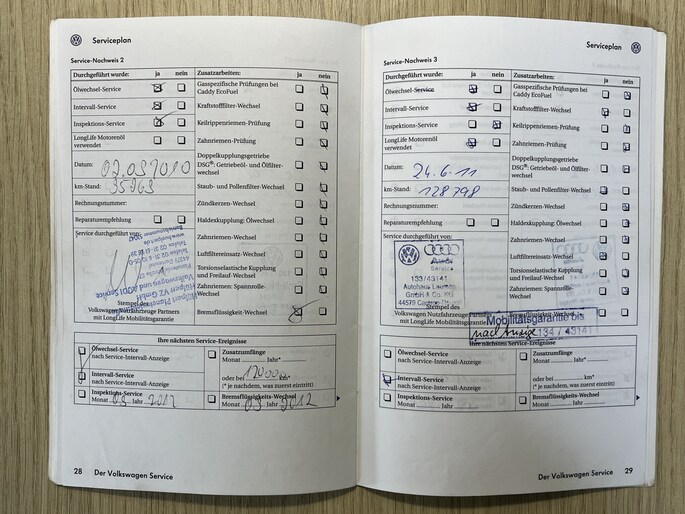 Serviceplan
Service-Nachweis 2
Durchgeführt wurde: ja nein
Ölwechsel-Service
Intervall-Service
Inspektions-Service
LongLife Motorenöl
verwendet
Datum:
km-Stand:
Rechnungsnummer:
Reparaturempfehlung
Service durchgeführt von:
Stempel des
Volkswagen Nutzfahrzeuge Partners
mit LongLife Mobilitätsgarantie
Zusatzarbeiten: ja nein
Gasspezifische Prüfungen bei
Caddy EcoFuel
Kraftstofffilter-Wechsel
Keilrippenriemen-Prüfung
Zahnriemen-Prüfung
Doppelkupplungsgetriebe
DSG®: Getriebeöl- und Ölfilter-
wechsel
Staub- und Pollenfilter-Wechsel
Zündkerzen-Wechsel
Haldexkupplung: Ölwechsel
Zahnriemen-Wechsel
Luftfiltereinsatz-Wechsel
Torsionselastische Kupplung
und Freilauf-Wechsel
Zahnriemen, Spannrolle-
Wechsel
Bremsflüssigkeits-Wechsel
Ihre nächsten Service-Ereignisse
Ölwechsel-Service
nach Service-Intervall-Anzeige
Intervall-Service
nach Service-Intervall-Anzeige
Inspektions-Service
Monat 03 Jahr 2012
Zusatzumfänge
Monat Jahr*
oder bei km*
(* je nachdem, was zuerst eintritt)
Bremsflüssigkeits-Wechsel
Monat 03 Jahr 2012
28 Der Volkswagen Service
Serviceplan
Service-Nachweis 3
Durchgeführt wurde: ja nein
Ölwechsel-Service
Intervall-Service
Inspektions-Service
LongLife Motorenöl
verwendet
Datum: 24.6.11
km-Stand: 128798
Rechnungsnummer:
Reparaturempfehlung
Service durchgeführt von:
Audi
Service
133/43141
Autohaus
GmbH & Co. KG
44579
Stempel des
Volkswagen Nutzfahrzeuge Partners
mit LongLife Mobilitätsgarantie
Zusatzarbeiten: ja nein
Gasspezifische Prüfungen bei
Caddy EcoFuel
Kraftstofffilter-Wechsel
Keilrippenriemen-Prüfung
Zahnriemen-Prüfung
Doppelkupplungsgetriebe
DSG®: Getriebeöl- und Ölfilter-
wechsel
Staub- und Pollenfilter-Wechsel
Zündkerzen-Wechsel
Haldexkupplung: Ölwechsel
Zahnriemen-Wechsel
Luftfiltereinsatz-Wechsel
Torsionselastische Kupplung
und Freilauf-Wechsel
Zahnriemen, Spannrolle-
Wechsel
Bremsflüssigkeits-Wechsel
Mobilitätsgarantie bis
nach Anzeige 134 / 43141
Ihre nächsten Service-Ereignisse
Ölwechsel-Service
nach Service-Intervall-Anzeige
Intervall-Service
nach Service-Intervall-Anzeige
Inspektions-Service
Monat Jahr
Zusatzumfänge
Monat Jahr*
oder bei km*
(* je nachdem, was zuerst eintritt)
Bremsflüssigkeits-Wechsel
Monat Jahr
Der Volkswagen Service 29